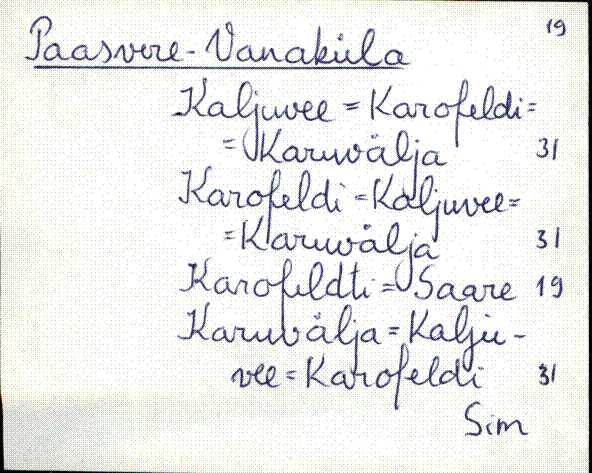 19
Paasvere-Vanaküla
Kaljuvee = Karofeldi =
= Karuvälja 31
Karofeldi = Kaljuvee =
= Karuvälja 31
Karofeldti = Saare 19
Karuvälja = Kalju-
vee = Karofeldi 31
Sim